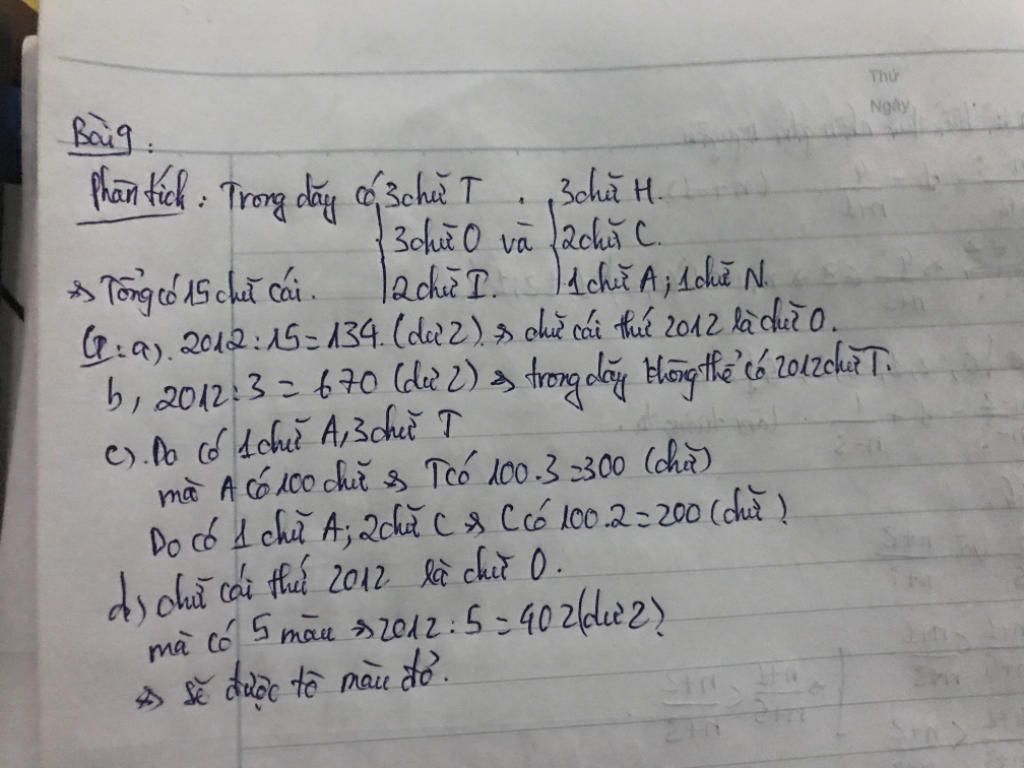 Thứ
Ngày
Bài 9:
Phân tích: Trong dãy có 3 chữ T . 3 chữ H.
3 chữ O và 2 chữ C.
=> Tổng có 15 chữ cái. 2 chữ I. 1 chữ A; 1 chữ N.
G: a). 2012:15=134.(dư 2). => chữ cái thứ 2012 là chữ O.
b, 2012:3 = 670 (dư 2) => trong dãy không thể có 2012 chữ T.
c). Do có 1 chữ A, 3 chữ T
mà A có 100 chữ => T có 100.3=300 (chữ)
Do có 1 chữ A; 2 chữ C => C có 100.2=200 (chữ)
d) chữ cái thứ 2012 là chữ O.
mà có 5 màu => 2012:5=402 (dư 2)
=> sẽ được tô màu đỏ.